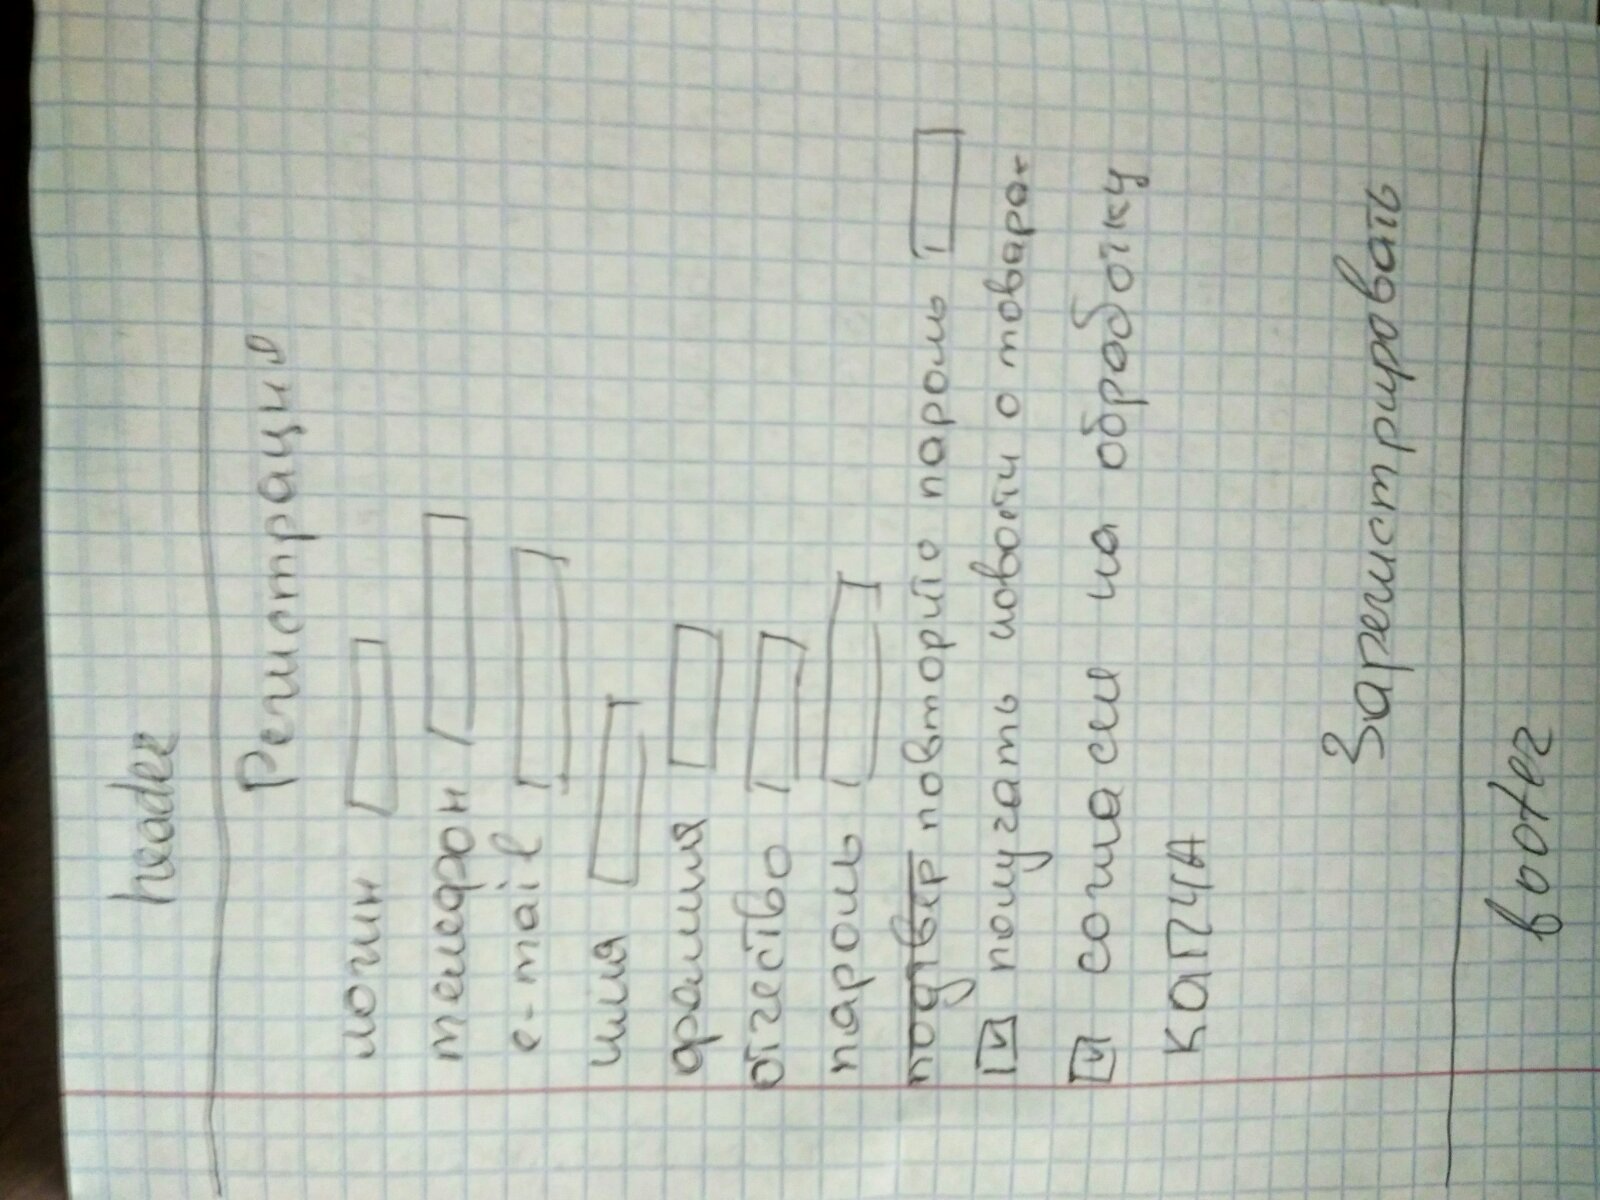 header
Регистрация
логин
телефон
e-mail
имя
фамилия
отчество
пароль
подтвер повторито пароль
получать новости о товарах
согласие на обработку
КАПЧА
Зарегистрировать
footer